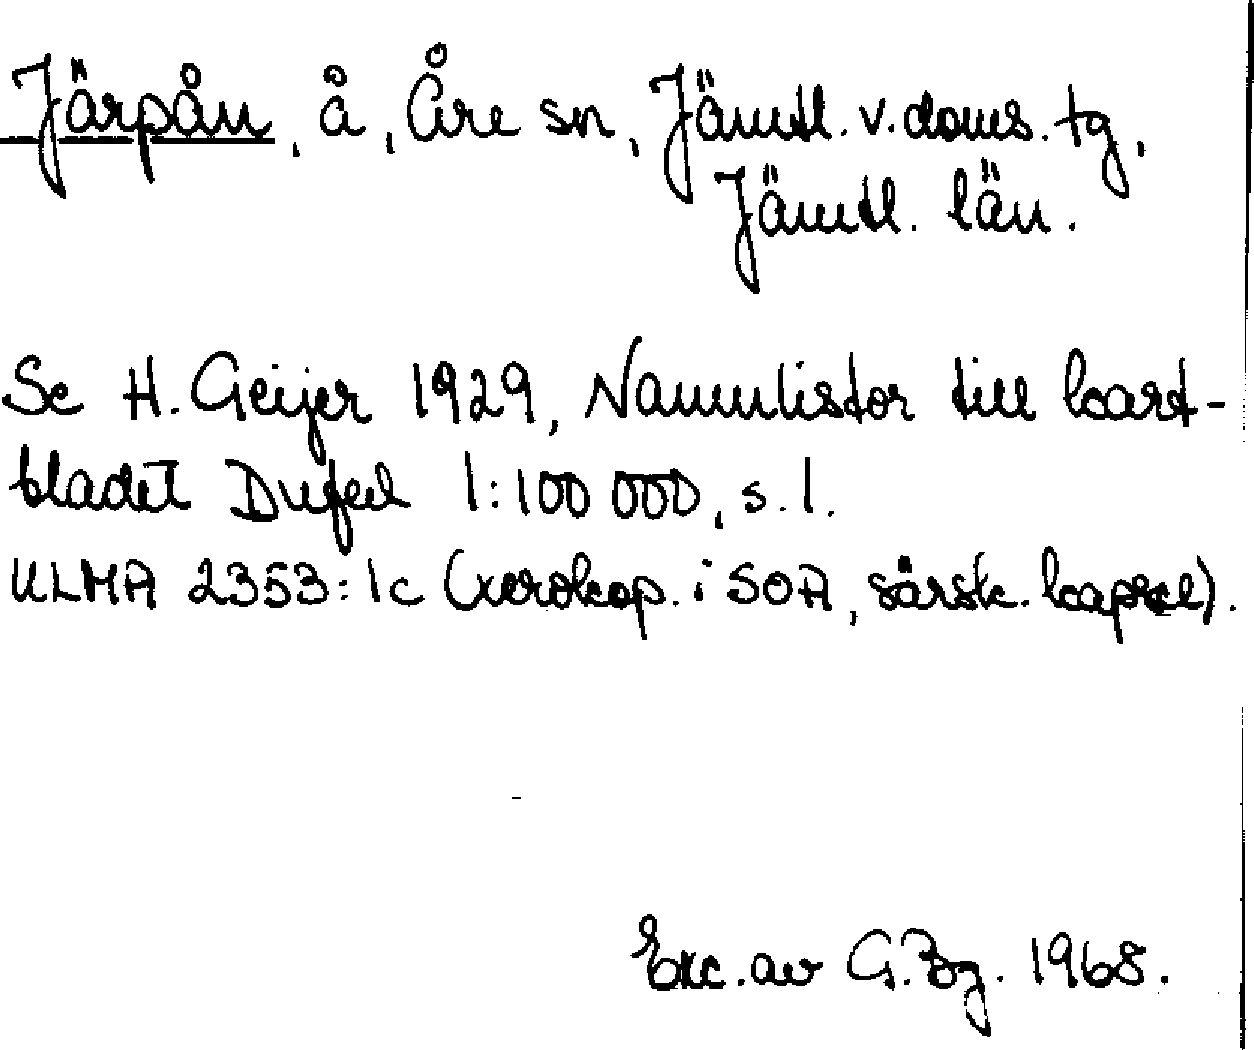 Järpån, å, Åre sn, Jämtl. v. doms. tg,
Jämtl. län.
Se H. Geijer 1929, Namnlistor till kart-
bladet Dufed 1:100 000, s. 1.
ULMA 2353:1c (xerokop. i SOA, särsk. kapsel).
Exc. av G. Bg. 1968.